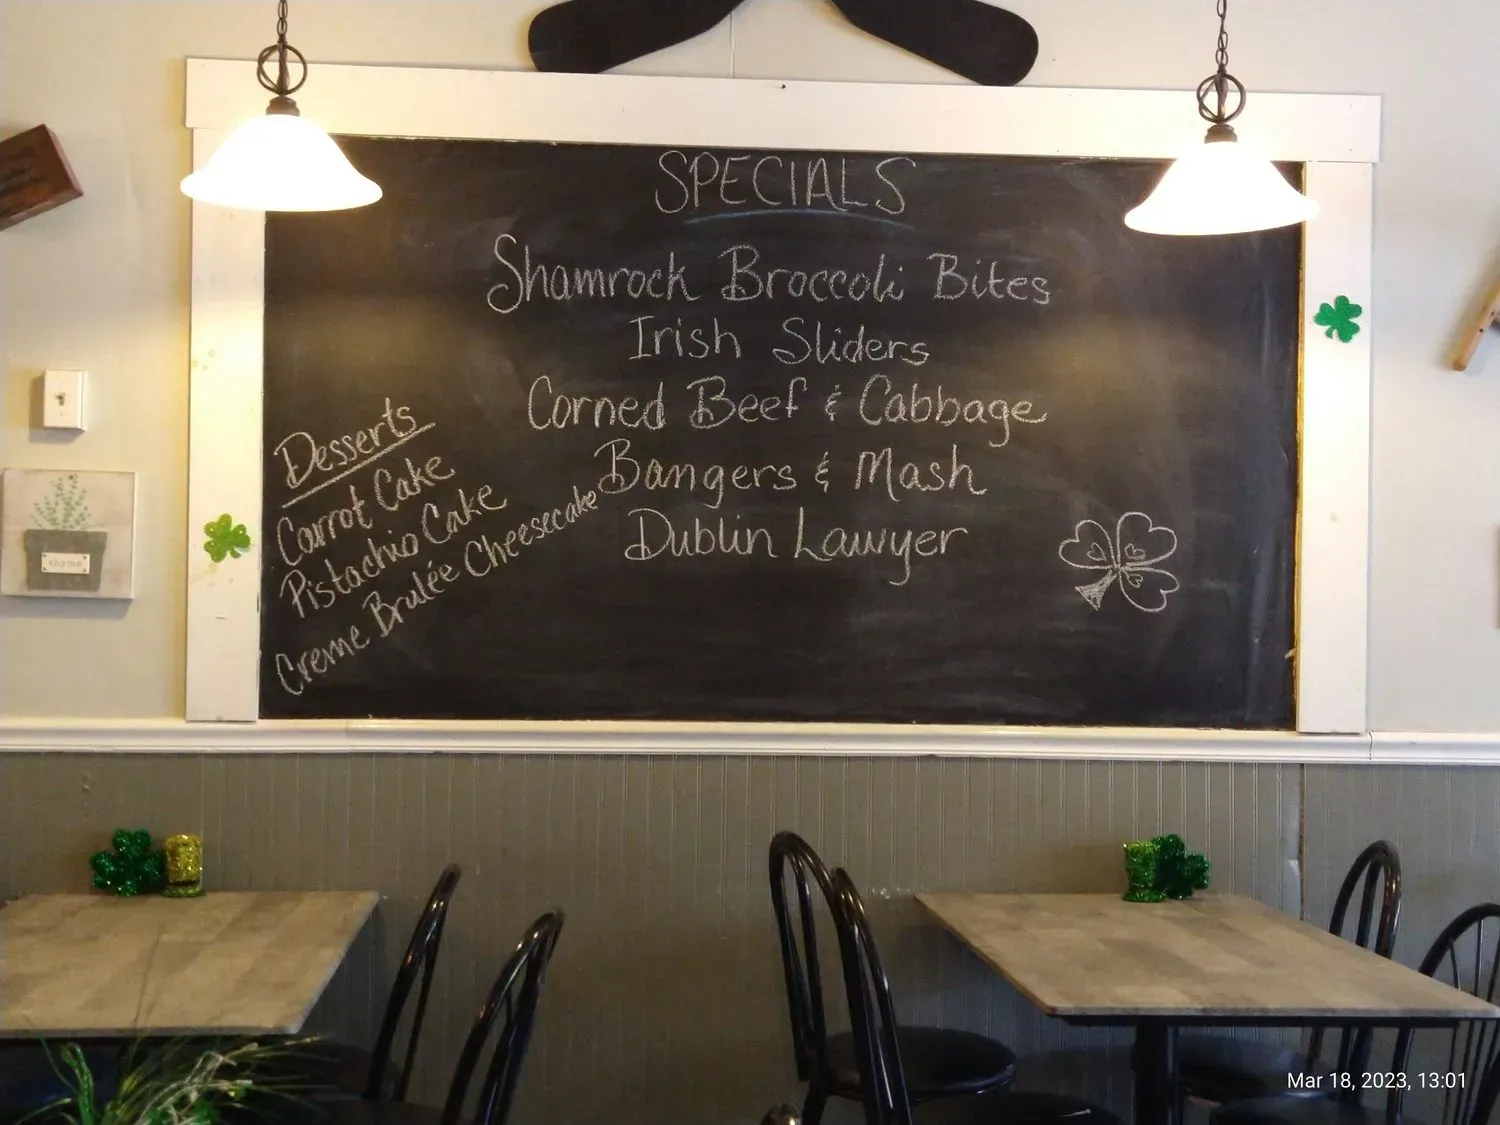 SPECIALS
Shamrock Broccoli Bites
Irish Sliders
Corned Beef & Cabbage
Bangers & Mash
Dublin Lawyer
Desserts
Carrot Cake
Pistachio Cake
Creme Brulée Cheesecake
thyme
Mar 18, 2023, 13:01